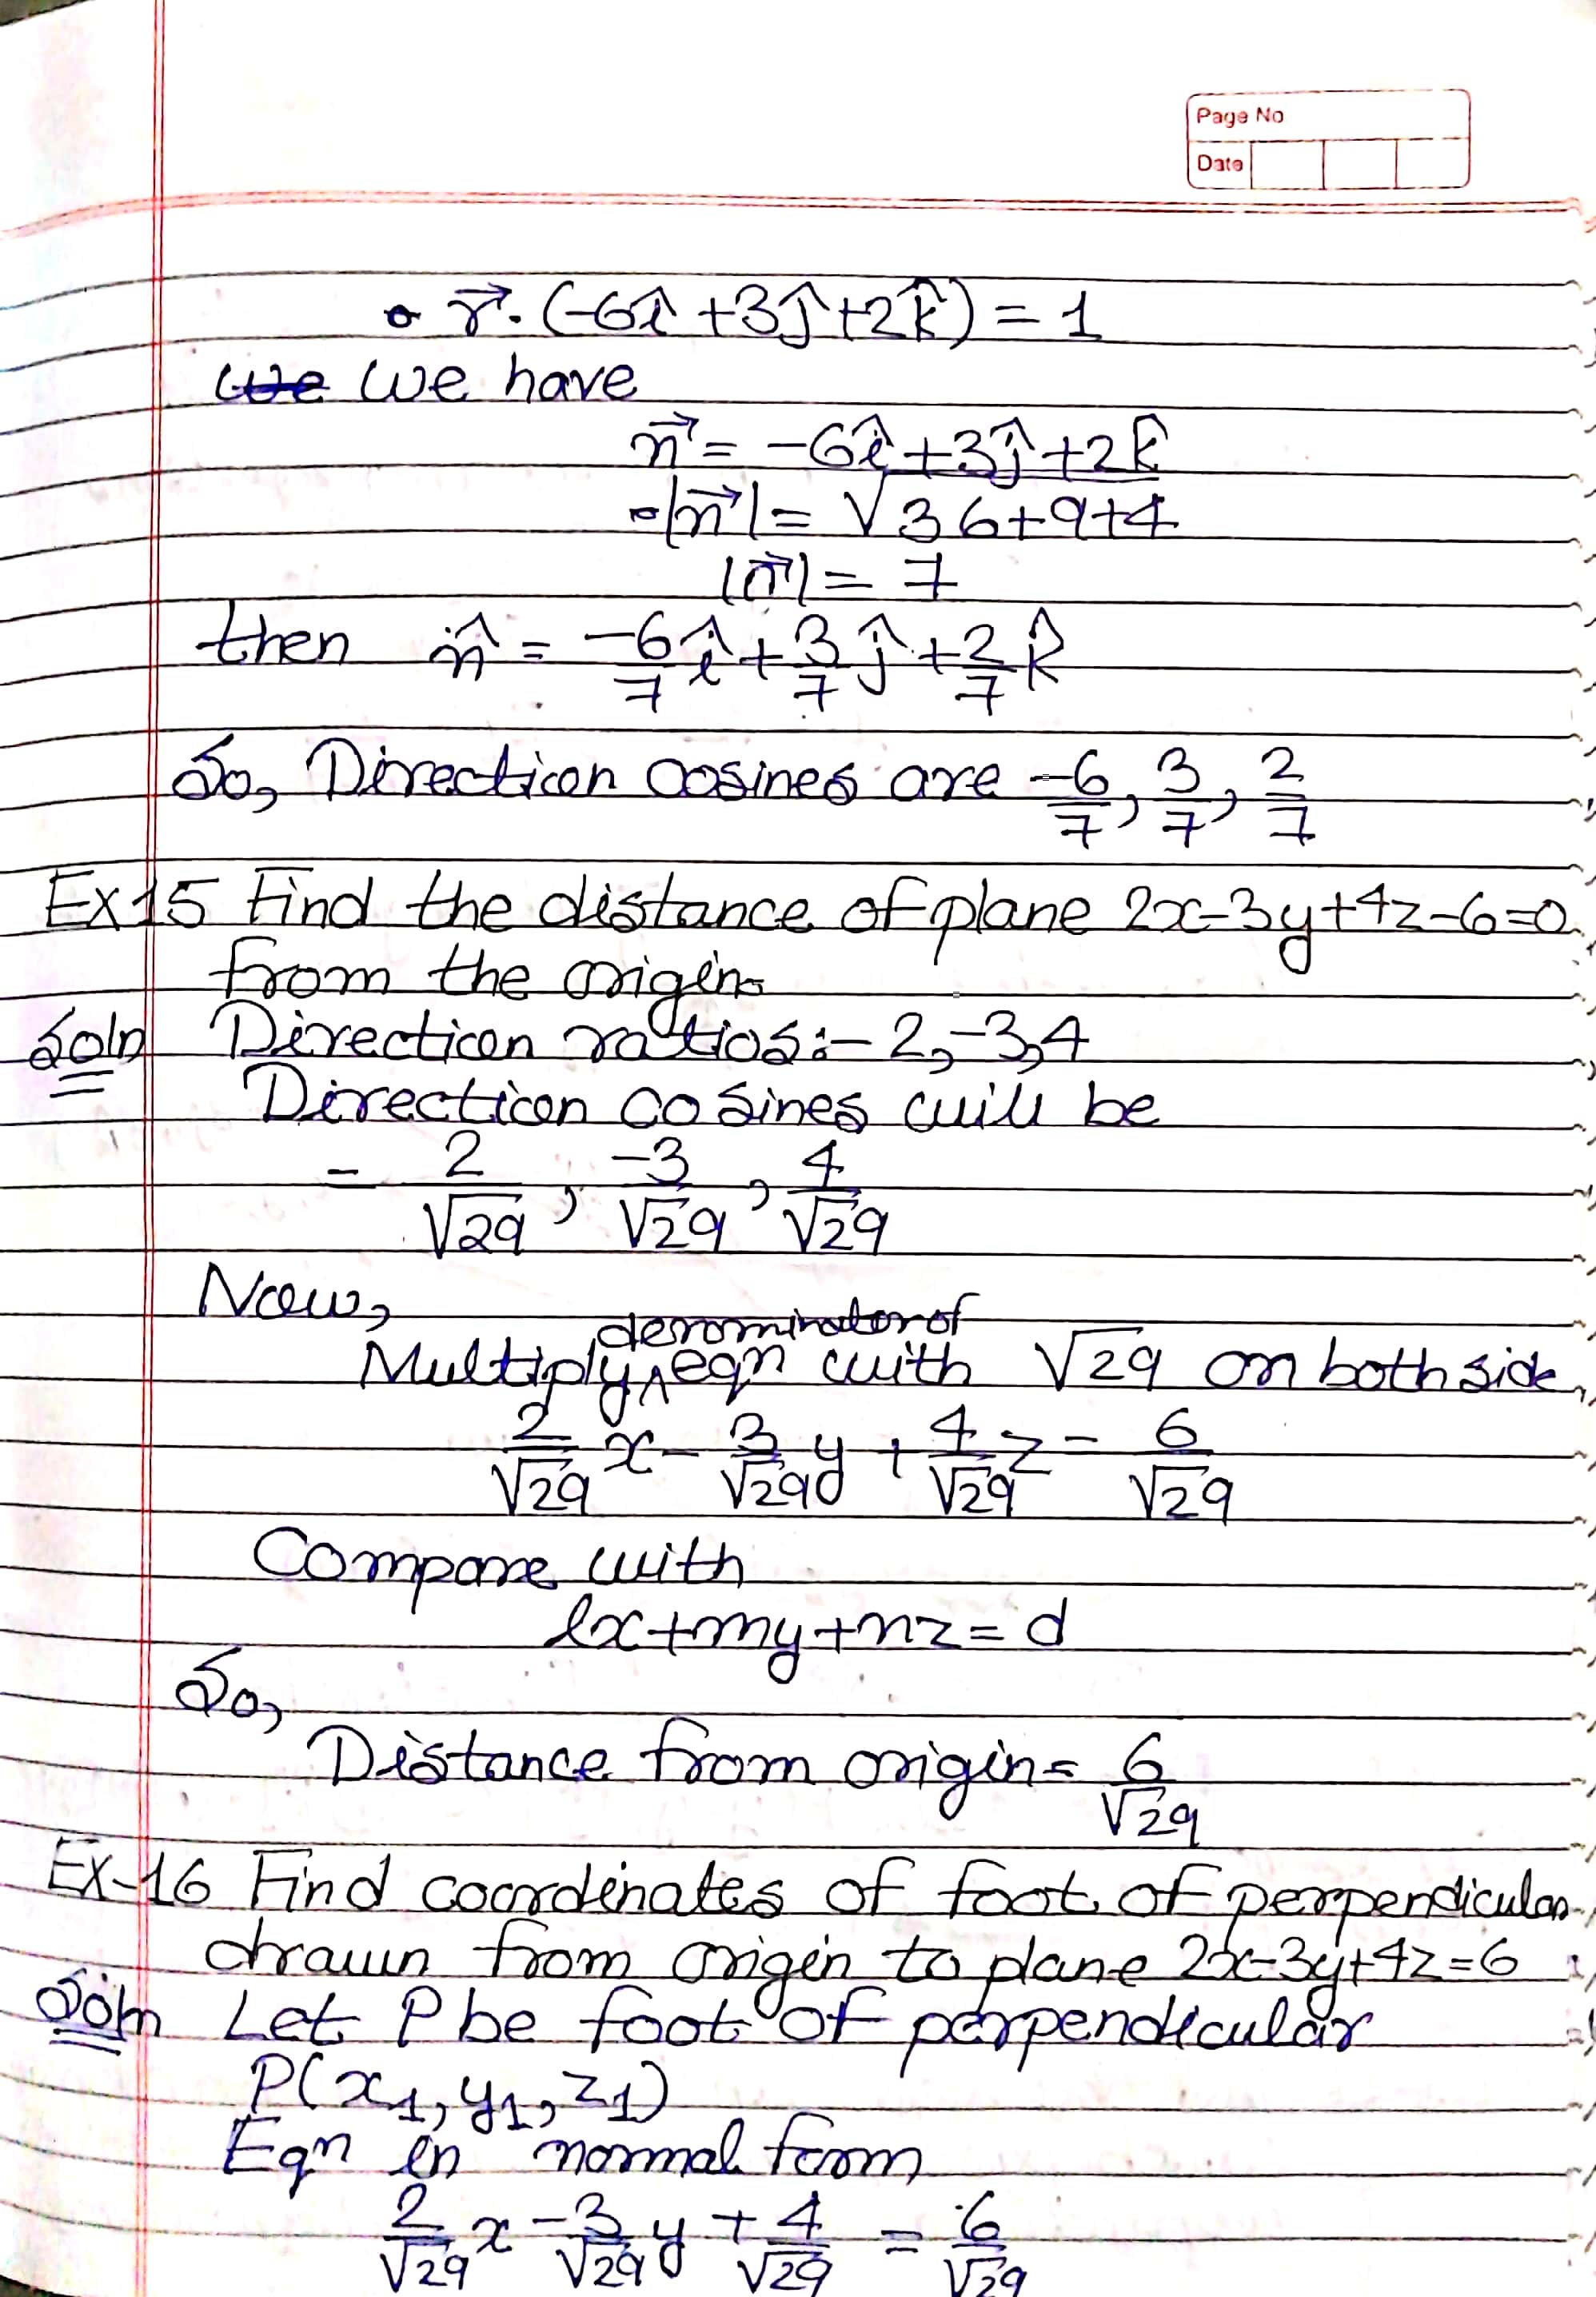 Page No
Date
r⃗. (-6î+3ĵ+2k̂) = 1
We have
n⃗ = -6î+3ĵ+2k̂
|n⃗| = √36+9+4
|n⃗| = 7
then n̂ = -6/7 î + 3/7 ĵ + 2/7 k̂
So, Direction cosines are -6/7, 3/7, 2/7
Ex15 Find the distance of plane 2x-3y+4z-6=0
from the origin.
Soln Direction ratios:- 2,-3,4
Direction cosines will be
= 2/√29, -3/√29, 4/√29
Now,
Multiply denominator of eqn with √29 on both side,
2/√29 x - 3/√29 y + 4/√29 z = 6/√29
Compare with
lx+my+nz=d
So,
Distance from origin= 6/√29
Ex-16 Find coordinates of foot of perpendicular
drawn from origin to plane 2x-3y+4z=6
Soln Let P be foot of perpendicular
P(x₁, y₁, z₁)
Eqn in normal form
2/√29 x - 3/√29 y + 4/√29 = 6/√29